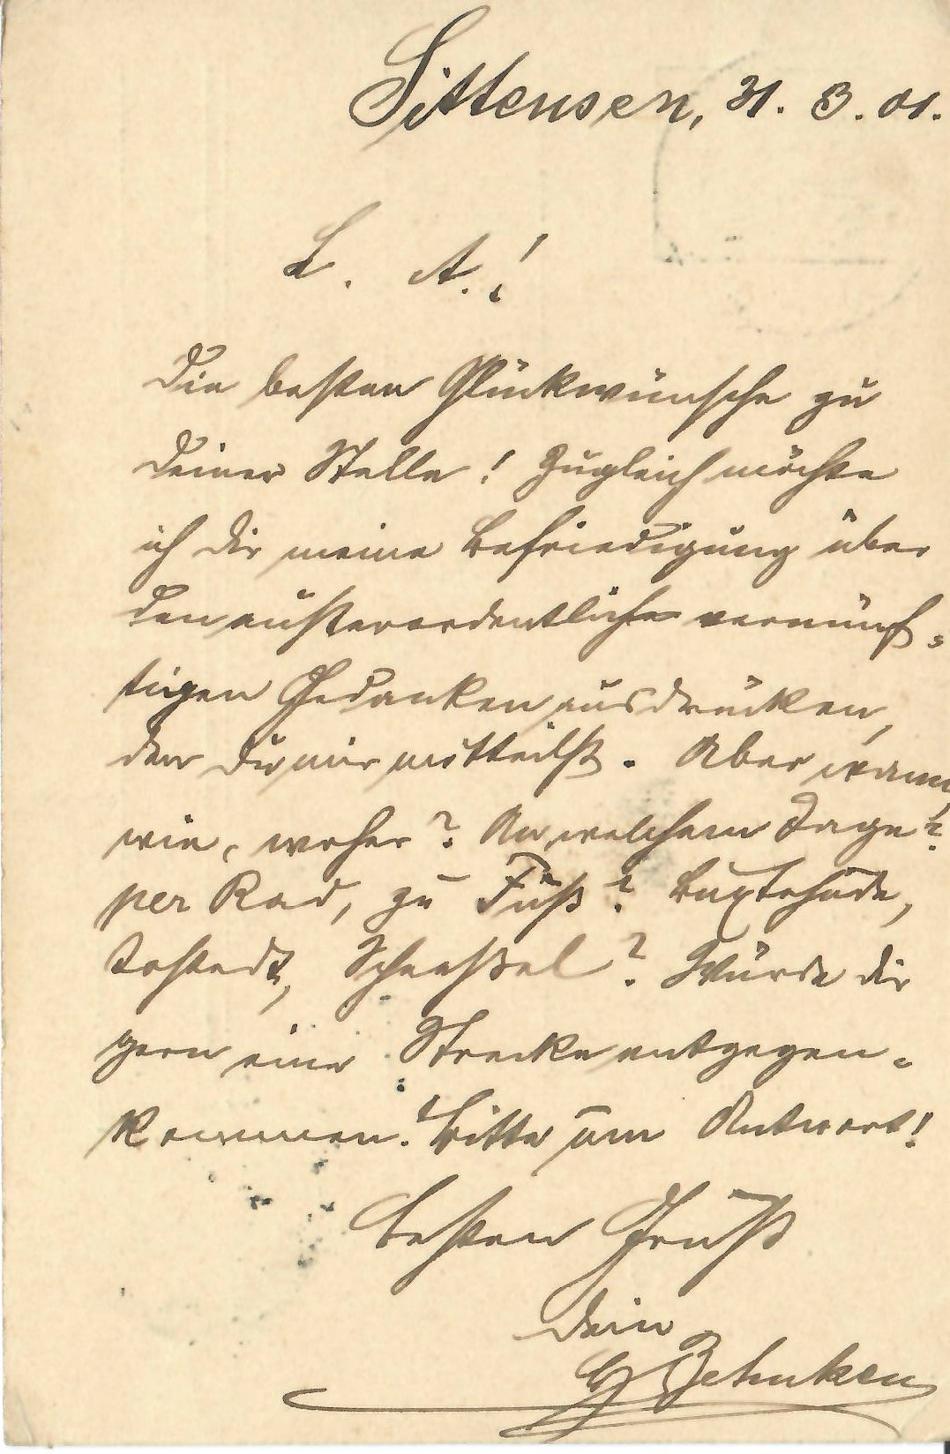 Sittensen, 31. 3. 01.
L. A.!
Die besten Glückwünsche zu
Deiner Stelle! Zugleich möchte
ich dir meine Befriedigung über
den außerordentlich vernünf-
tigen Gedanken ausdrücken,
den Du mir mitteilst. Aber wann,
wie, woher? An welchem Tage?
per Rad, zu Fuß? Buxtehude,
Tostedt, Scheeßel? Würde dir
gern eine Strecke entgegen-
kommen. Bitte um Antwort!
Besten Gruß
Dein